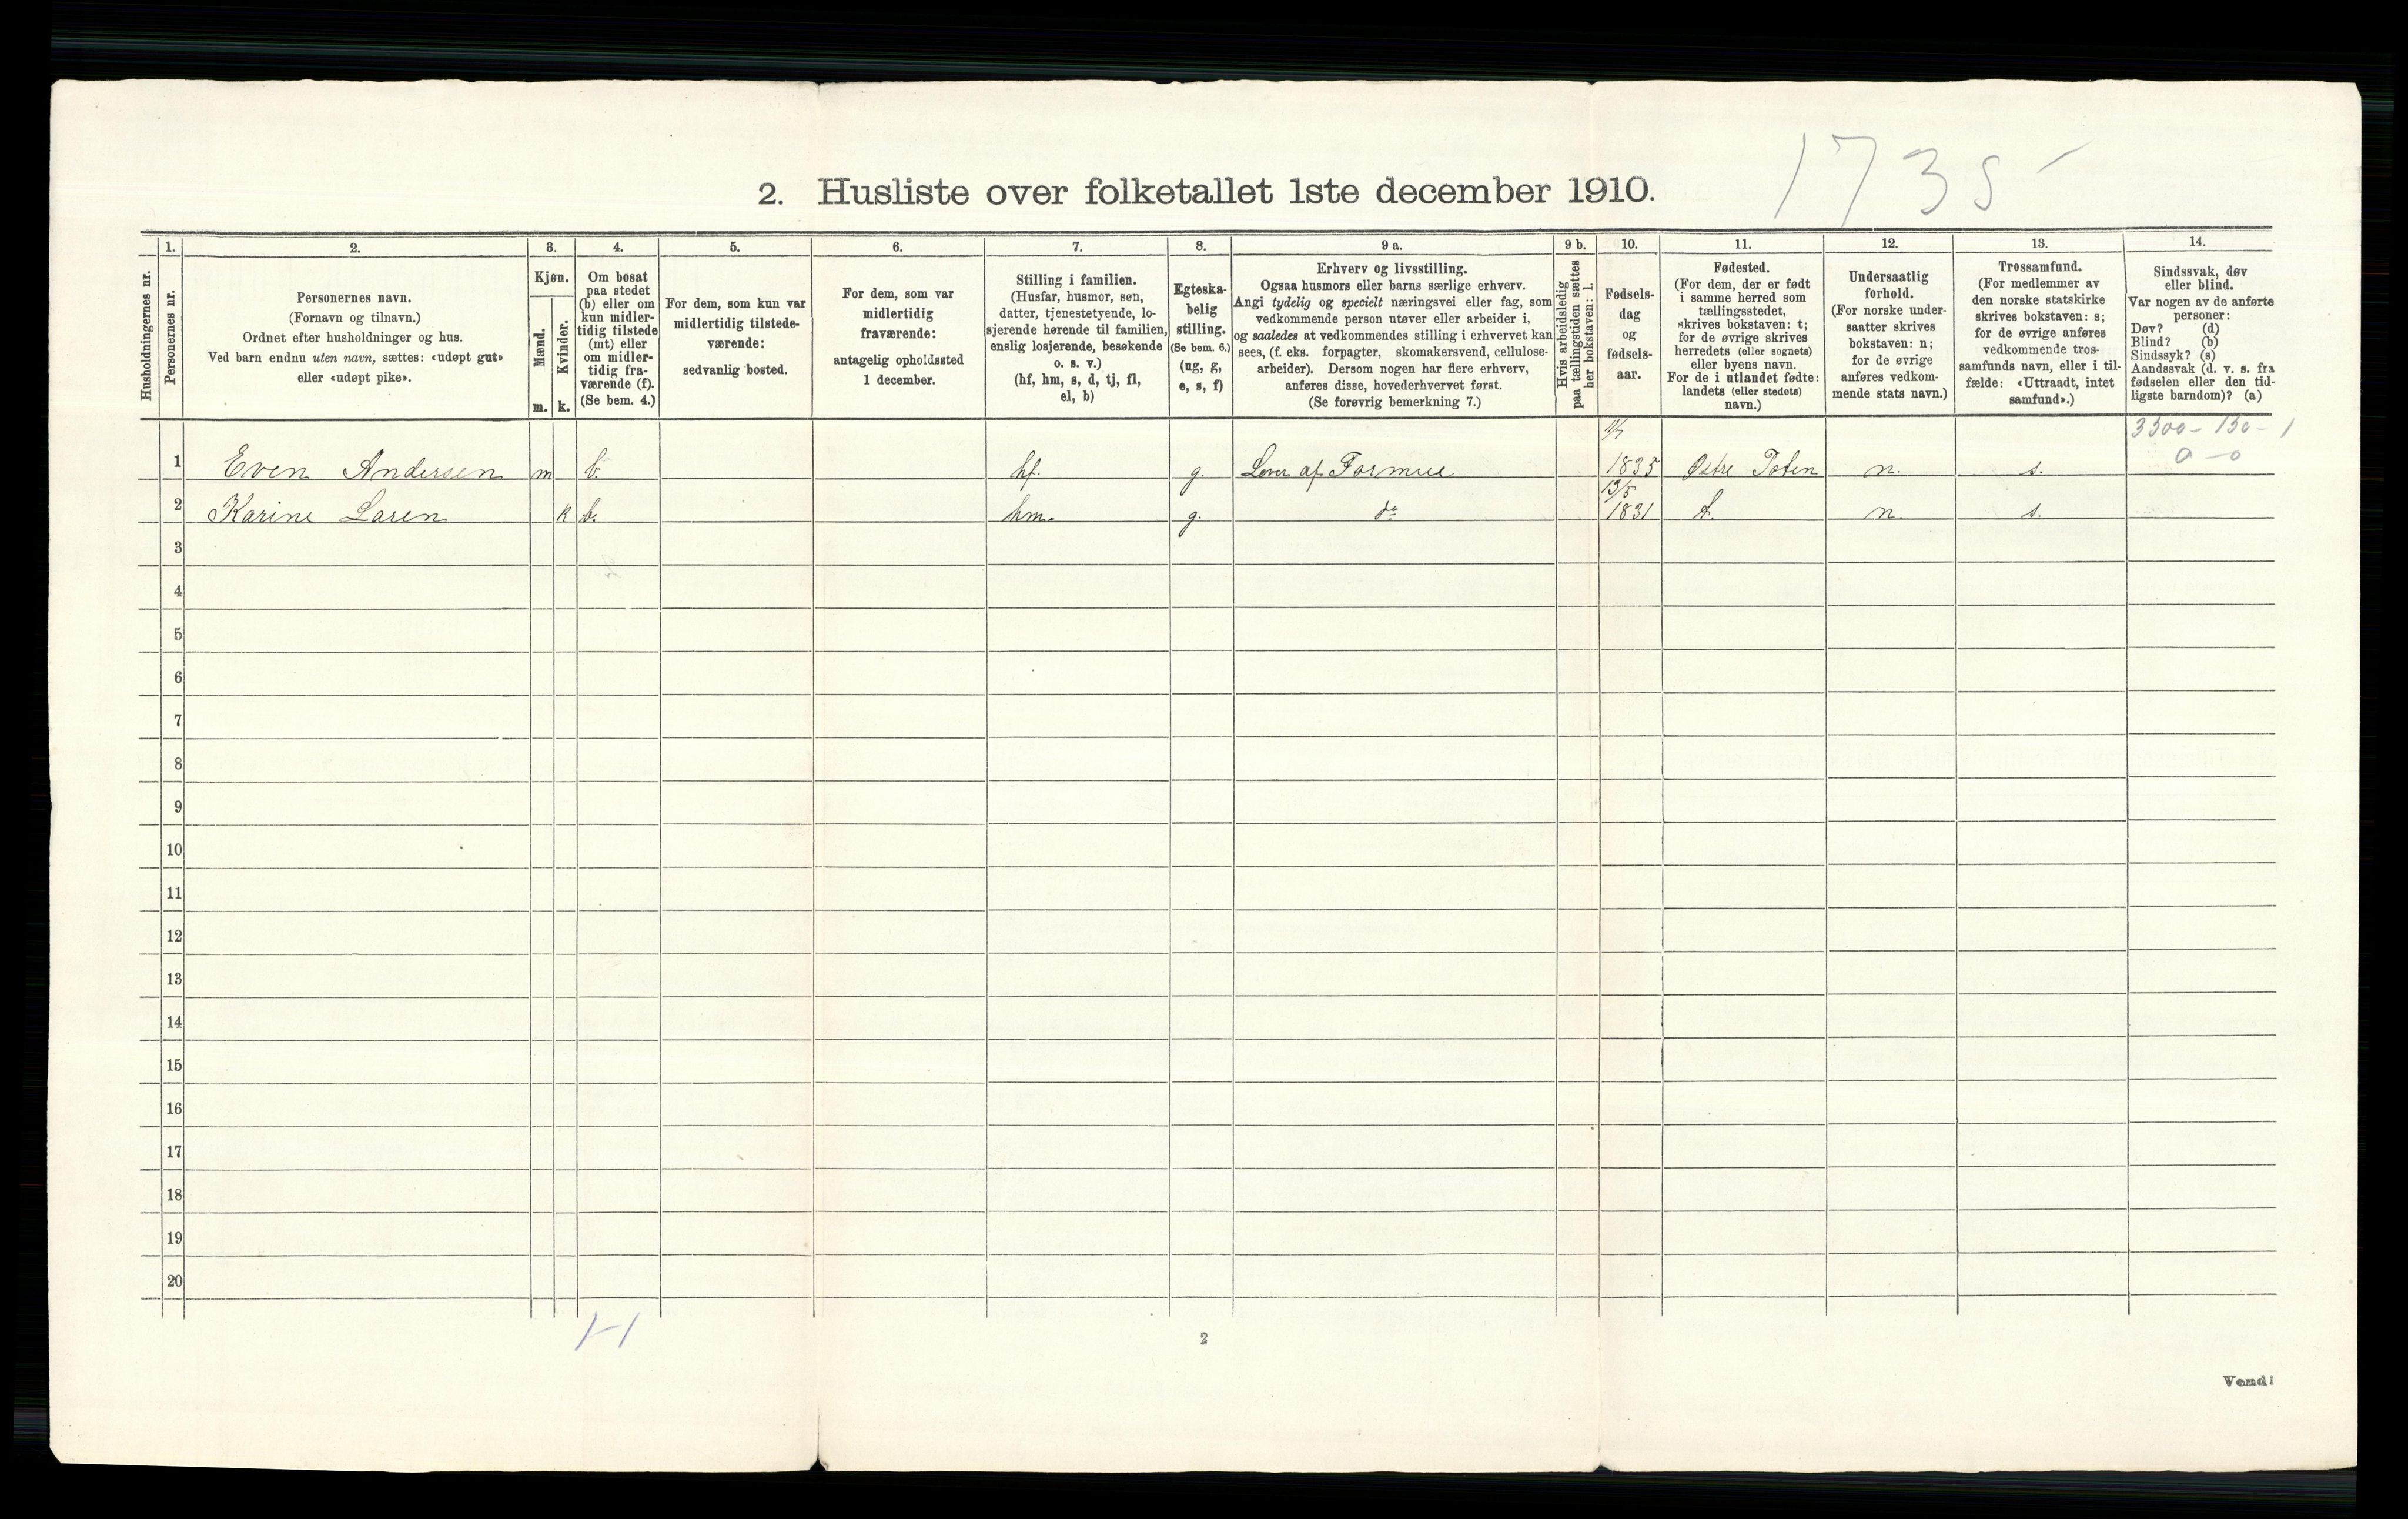 1735
2. Husliste over folketallet 1ste december 1910.
Husholdningernes nr.
1.
Personernes nr.
2.
Personernes navn.
(Fornavn og tilnavn.)
Ordnet efter husholdninger og hus.
Ved barn endnu uten navn, sættes: «udøpt gut»
eller «udøpt pike».
3.
Kjøn.
Mænd.
Kvinder.
m. k.
4.
Om bosat
paa stedet
(b) eller om
kun midler-
tidig tilstede
(mt) eller
om midler-
tidig fra-
værende (f).
(Se bem. 4.)
5.
For dem, som kun var
midlertidig tilstede-
værende:
sedvanlig bosted.
6.
For dem, som var
midlertidig
fraværende:
antagelig opholdssted
1 december.
7.
Stilling i familien.
(Husfar, husmor, søn,
datter, tjenestetyende, lo-
sjerende hørende til familien,
enslig losjerende, besøkende
o. s. v.)
(hf, hm, s, d, tj, fl,
el, b)
8.
Egteska-
belig
stilling.
(Se bem. 6.)
(ug, g,
e, s, f)
9 a.
Erhverv og livsstilling.
Ogsaa husmors eller barns særlige erhverv.
Angi tydelig og specielt næringsvei eller fag, som
vedkommende person utøver eller arbeider i,
og saaledes at vedkommendes stilling i erhvervet kan
sees, (f. eks. forpagter, skomakersvend, cellulose-
arbeider). Dersom nogen har flere erhverv,
anføres disse, hovederhvervet først.
(Se forøvrig bemerkning 7.)
9 b.
Hvis arbeidsledig
paa tællingstiden sættes
her bokstaven: l.
10.
Fødsels-
dag
og
fødsels-
aar.
11.
Fødested.
(For dem, der er født
i samme herred som
tællingsstedet,
skrives bokstaven: t;
for de øvrige skrives
herredets (eller sognets)
eller byens navn.
For de i utlandet fødte:
landets (eller stedets)
navn.)
12.
Undersaatlig
forhold.
(For norske under-
saatter skrives
bokstaven: n;
for de øvrige
anføres vedkom-
mende stats navn.)
13.
Trossamfund.
(For medlemmer av
den norske statskirke
skrives bokstaven: s;
for de øvrige anføres
vedkommende tros-
samfunds navn, eller i til-
fælde: «Uttraadt, intet
samfund».)
14.
Sindssvak, døv
eller blind.
Var nogen av de anførte
personer:
Døv? (d)
Blind? (b)
Sindssyk? (s)
Aandssvak (d. v. s. fra
fødselen eller den tid-
ligste barndom)? (a)
3300 - 130 - 1
0 - 0
1 Even Andersen m b. hf. g. Lever af Formue 1835 Østre Toten n. s.
13/5
2 Karine Laren k b. hm. g. do 1831 t. n. s.
3
4
5
6
7
8
9
10
11
12
13
14
15
16
17
18
19
20
1-1
2
Vend!